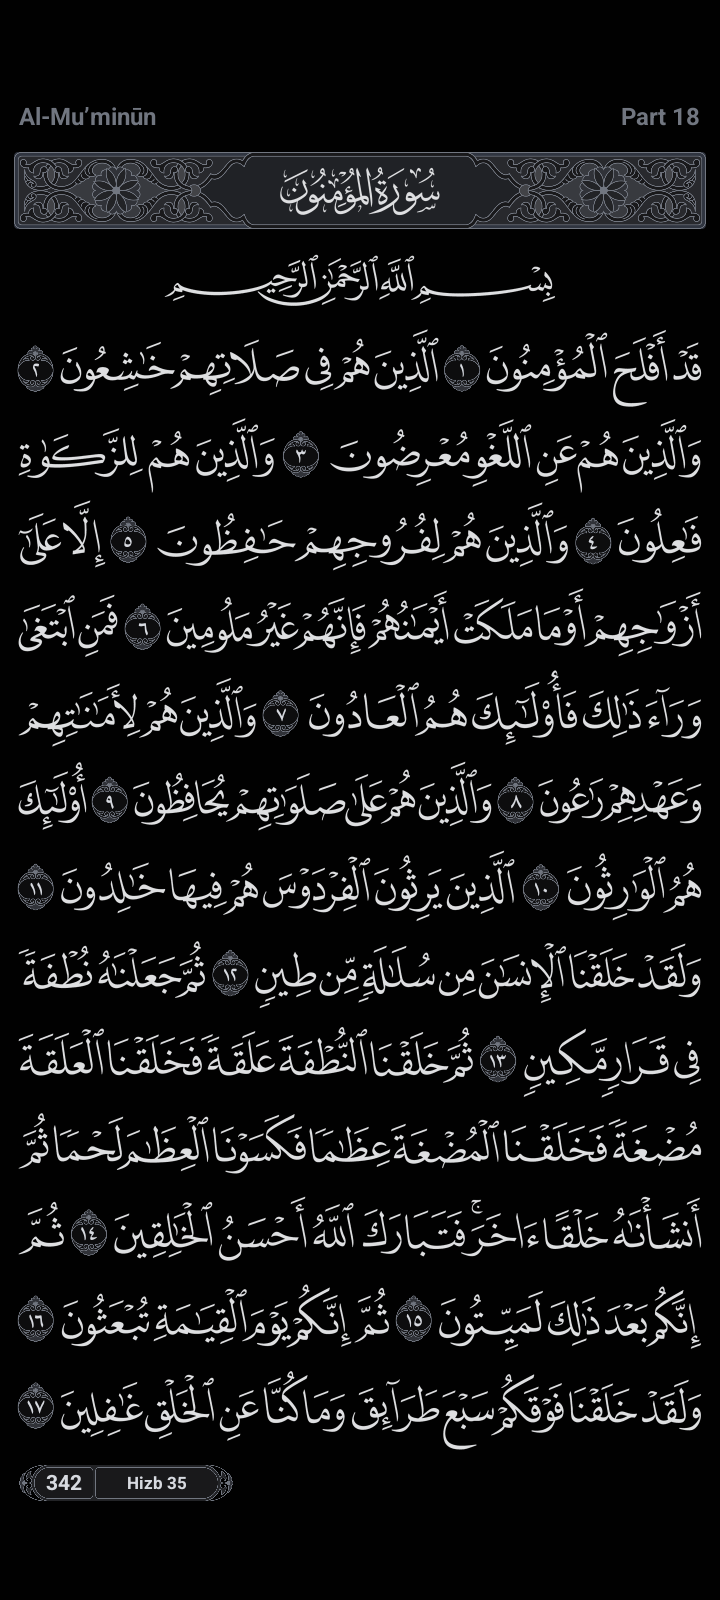 Al-Mu’minūn
Part 18
سُورَةُ المُؤۡمِنُونَ
بِسۡمِ ٱللَّهِ ٱلرَّحۡمَٰنِ ٱلرَّحِيمِ
قَدۡ أَفۡلَحَ ٱلۡمُؤۡمِنُونَ ١ ٱلَّذِينَ هُمۡ فِي صَلَاتِهِمۡ خَٰشِعُونَ ٢
وَٱلَّذِينَ هُمۡ عَنِ ٱللَّغۡوِ مُعۡرِضُونَ ٣ وَٱلَّذِينَ هُمۡ لِلزَّكَوٰةِ
فَٰعِلُونَ ٤ وَٱلَّذِينَ هُمۡ لِفُرُوجِهِمۡ حَٰفِظُونَ ٥ إِلَّا عَلَىٰٓ
أَزۡوَٰجِهِمۡ أَوۡ مَا مَلَكَتۡ أَيۡمَٰنُهُمۡ فَإِنَّهُمۡ غَيۡرُ مَلُومِينَ ٦ فَمَنِ ٱبۡتَغَىٰ
وَرَآءَ ذَٰلِكَ فَأُوْلَٰٓئِكَ هُمُ ٱلۡعَادُونَ ٧ وَٱلَّذِينَ هُمۡ لِأَمَٰنَٰتِهِمۡ
وَعَهۡدِهِمۡ رَٰعُونَ ٨ وَٱلَّذِينَ هُمۡ عَلَىٰ صَلَوَٰتِهِمۡ يُحَافِظُونَ ٩ أُوْلَٰٓئِكَ
هُمُ ٱلۡوَٰرِثُونَ ١٠ ٱلَّذِينَ يَرِثُونَ ٱلۡفِرۡدَوۡسَ هُمۡ فِيهَا خَٰلِدُونَ ١١
وَلَقَدۡ خَلَقۡنَا ٱلۡإِنسَٰنَ مِن سُلَٰلَةٖ مِّن طِينٖ ١٢ ثُمَّ جَعَلۡنَٰهُ نُطۡفَةٗ
فِي قَرَارٖ مَّكِينٖ ١٣ ثُمَّ خَلَقۡنَا ٱلنُّطۡفَةَ عَلَقَةٗ فَخَلَقۡنَا ٱلۡعَلَقَةَ
مُضۡغَةٗ فَخَلَقۡنَا ٱلۡمُضۡغَةَ عِظَٰمٗا فَكَسَوۡنَا ٱلۡعِظَٰمَ لَحۡمٗا ثُمَّ
أَنشَأۡنَٰهُ خَلۡقًا ءَاخَرَۚ فَتَبَارَكَ ٱللَّهُ أَحۡسَنُ ٱلۡخَٰلِقِينَ ١٤ ثُمَّ
إِنَّكُم بَعۡدَ ذَٰلِكَ لَمَيِّتُونَ ١٥ ثُمَّ إِنَّكُمۡ يَوۡمَ ٱلۡقِيَٰمَةِ تُبۡعَثُونَ ١٦
وَلَقَدۡ خَلَقۡنَا فَوۡقَكُمۡ سَبۡعَ طَرَآئِقَ وَمَا كُنَّا عَنِ ٱلۡخَلۡقِ غَٰفِلِينَ ١٧
342
Hizb 35